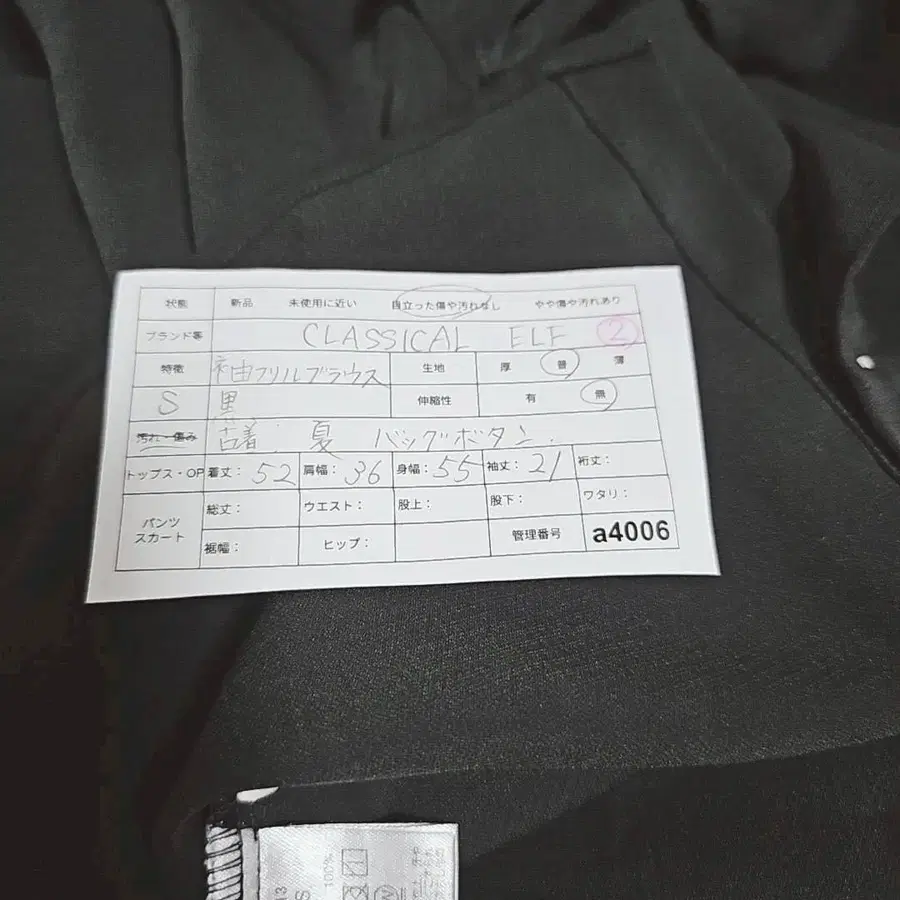 状態 新品 未使用に近い 目立った傷や汚れなし やや傷や汚れあり
ブランド等 CLASSICAL ELF 2
特徴 袖フリルブラウス 生地 厚 普 薄
S 黒 伸縮性 有 無
汚れ・傷み 古着. 夏 バックボタン.
トップス・OP 着丈：52 肩幅：36 身幅：55 袖丈：21 裄丈：
パンツ スカート 総丈： ウエスト： 股上： 股下： ワタリ：
裾幅： ヒップ： 管理番号 a4006
100%
S